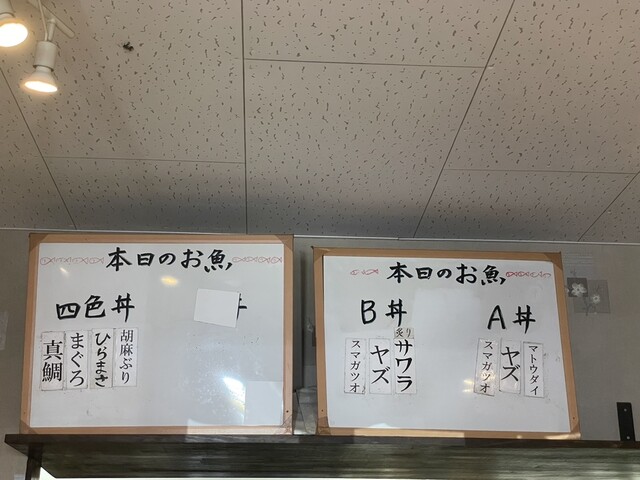 本日のお魚
四色丼
胡麻ぶり
ひらまさ
まぐろ
真鯛
丼
本日のお魚
B丼
炙り
サワラ
ヤズ
スマガツオ
A丼
マトウダイ
ヤズ
スマガツオ